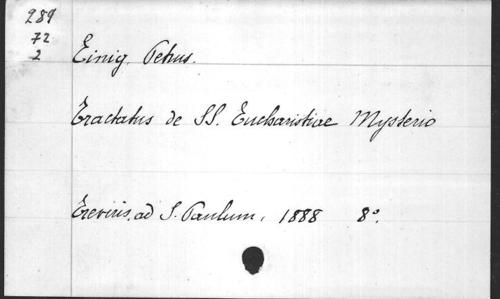 289
72
2
Einig, Petrus.
Tractatus de SS. Eucharistiae Mysterio
Treviris, ad S. Paulum, 1888 8°.